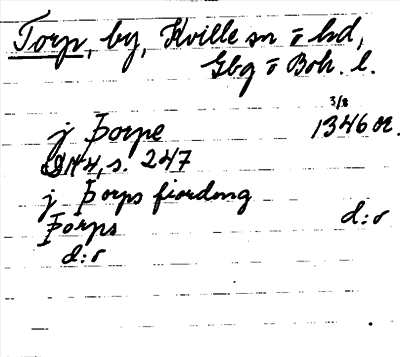 Torp, by, Kville sn o hd,
Gbg o Boh. l.
3/8
j Þorpe 1346 or.
DN 4, s. 247
j Þorps fiordong
Þorps d:o
d:o